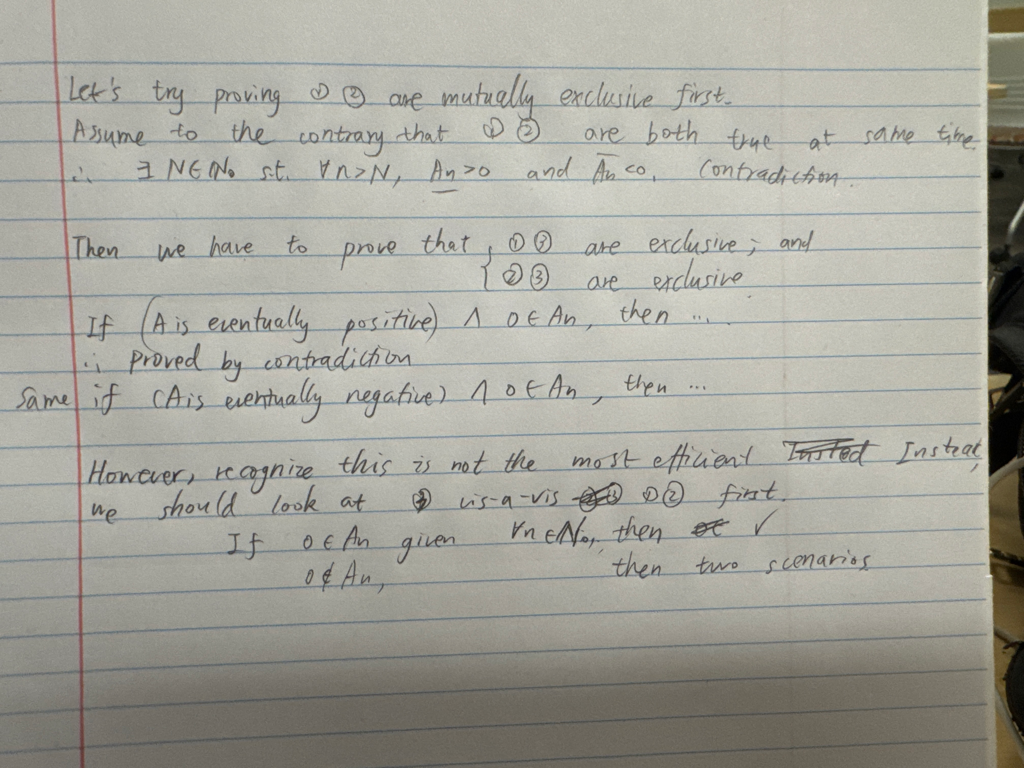 Let's try proving ① ② are mutually exclusive first.
Assume to the contrary that ① ② are both true at same time.
∴ ∃ N∈ℕ₀ s.t. ∀n>N, A̲n>0 and A̅n<0. Contradiction.
Then we have to prove that { ①③ are exclusive; and
②③ are exclusive
If (A is eventually positive) ∧ 0∈An, then ...
∴ proved by contradiction
Same if (A is eventually negative) ∧ 0∈An, then ...
However, recognize this is not the most efficient Instead,
we should look at ③ vis-a-vis ①② first.
If 0∈An given ∀n∈ℕ₀, then ✓
0∉An, then two scenarios